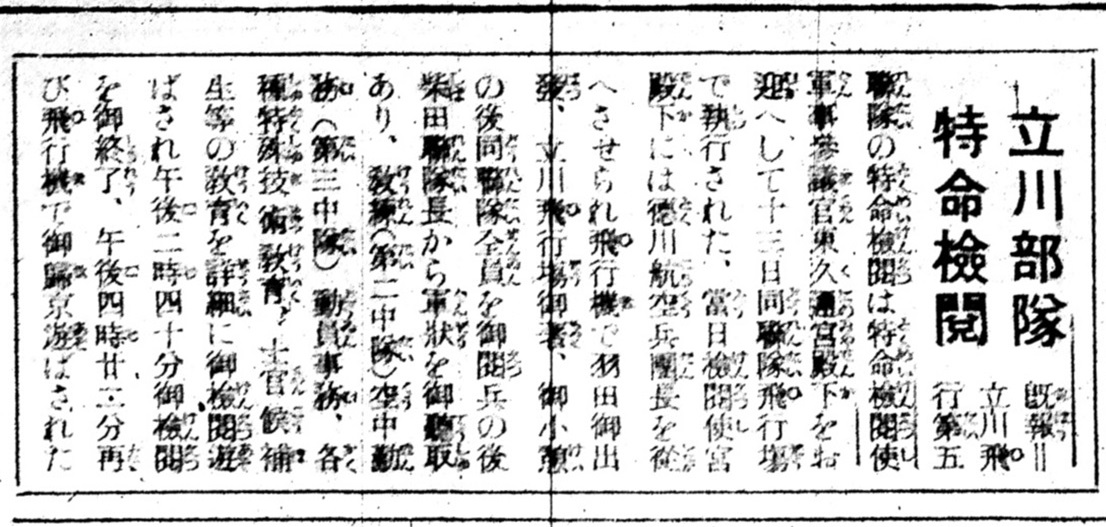 立川部隊
特命檢閲
既報＝
立川飛
行第五
聯隊の特命檢閲は特命檢閲使
軍事參議官東久邇宮殿下をお
迎へして十三日同聯隊飛行場
で執行された、當日檢閲使宮
殿下には德川航空兵團長を從
へさせられ飛行機で羽田御出
發、立川飛行場御著、御小憩
の後同聯隊全員を御閲兵の後
柴田聯隊長から軍狀を御聽取
あり、敎練（第二中隊）空中勤
務（第三中隊）動員事務、各
種特殊技術敎育、士官候補
生等の敎育を詳細に御檢閲遊
ばされ午後二時四十分御檢閲
を御終了、午後四時廿二分再
び飛行機で御歸京遊ばされた